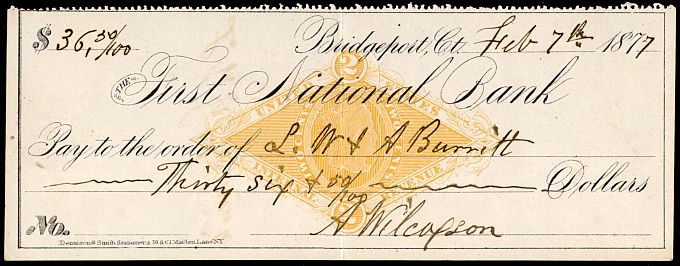 $ 36, 50/100 Bridgeport, Ct. Feb 7th 1877
THE First National Bank
2
UNITED STATES
INTERNAL REVENUE
Pay to the order of L. W & A Burritt
Thirty six & 50/100 Dollars
No. A Wilcoxson
Dennison & Smith, Stationers